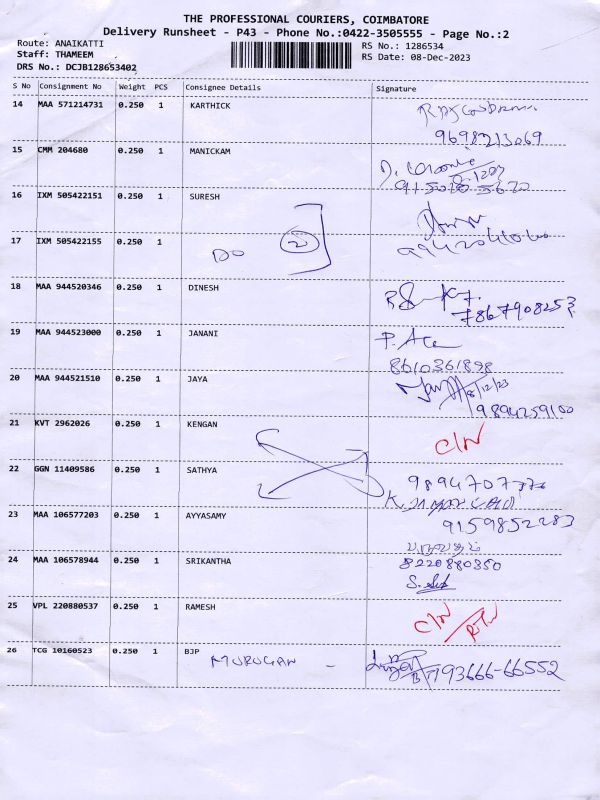 THE PROFESSIONAL COURIERS, COIMBATORE
Delivery Runsheet - P43 - Phone No.:0422-3505555 - Page No.:2
Route: ANAIKATTI
RS No.: 1286534
Staff: THAMEEM
RS Date: 08-Dec-2023
DRS No.: DCJB128653402
S No Consignment No Weight PCS Consignee Details Signature
14 MAA 571214731 0.250 1 KARTHICK
9698213069
15 CMM 204680 0.250 1 MANICKAM
16 IXM 505422151 0.250 1 SURESH
17 IXM 505422155 0.250 1
DO 2
18 MAA 944520346 0.250 1 DINESH
7867908253
19 MAA 944523000 0.250 1 JANANI
8610361898
20 MAA 944521510 0.250 1 JAYA
9894259100
21 KVT 2962026 0.250 1 KENGAN
C/N
22 GGN 11409586 0.250 1 SATHYA
23 MAA 106577203 0.250 1 AYYASAMY
9159852283
24 MAA 106578944 0.250 1 SRIKANTHA
8220880350
25 VPL 220880537 0.250 1 RAMESH
C/N
26 TCG 10160523 0.250 1 BJP
MURUGAN - 93666-66552